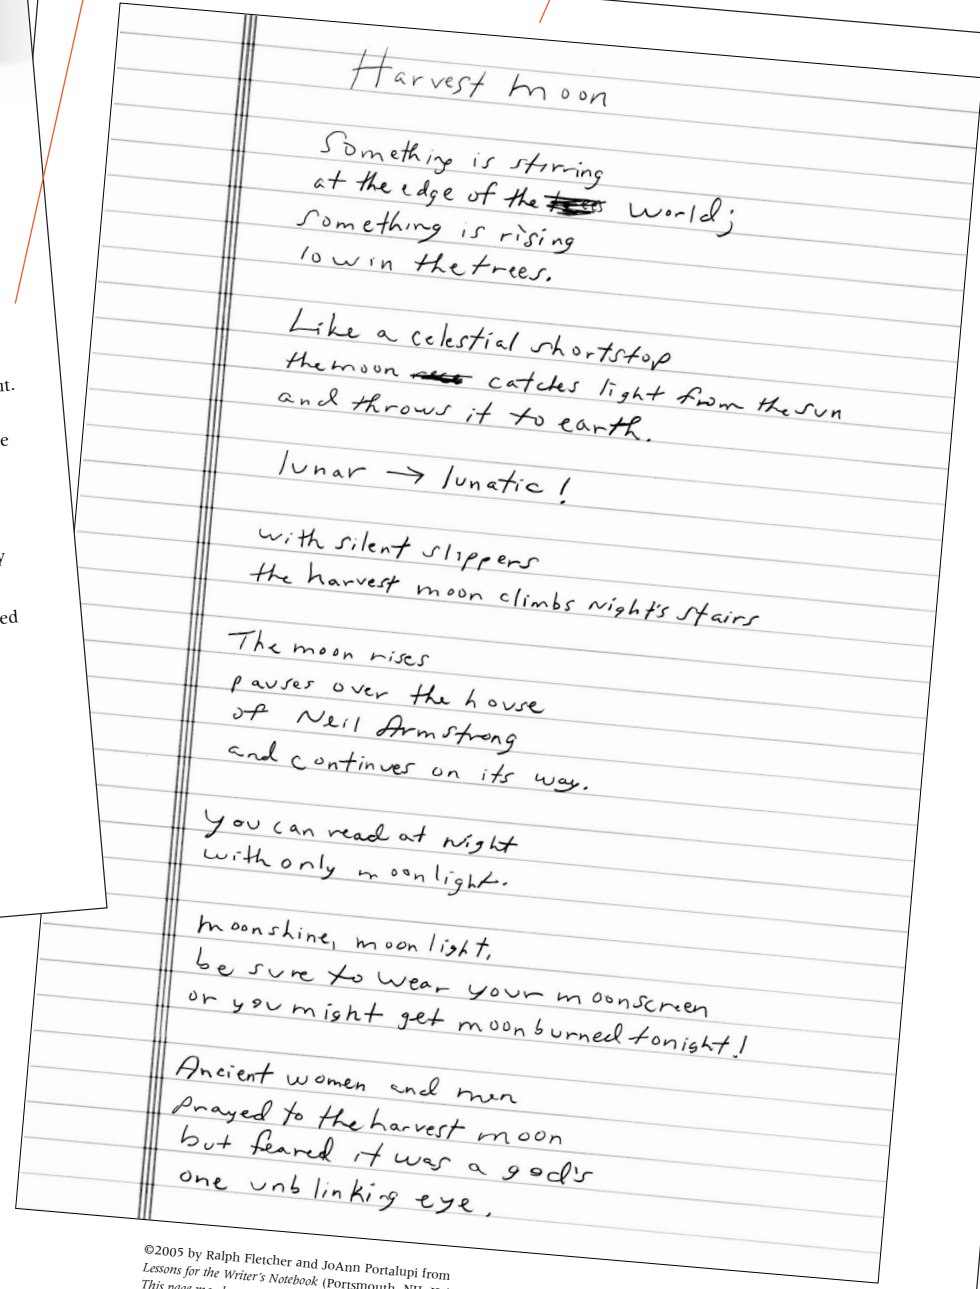 Harvest moon
Something is stirring
at the edge of the trees world;
Something is rising
low in the trees.
Like a celestial shortstop
the moon catches light from the sun
and throws it to earth.
lunar → lunatic!
with silent slippers
the harvest moon climbs night's stairs
The moon rises
pauses over the house
of Neil Armstrong
and continues on its way.
you can read at night
with only moonlight.
moonshine, moonlight,
be sure to wear your moonscreen
or you might get moonburned tonight!
Ancient women and men
prayed to the harvest moon
but feared it was a god's
one unblinking eye.
ut.
e
y
ed
©2005 by Ralph Fletcher and JoAnn Portalupi from
Lessons for the Writer's Notebook (Portsmouth, NH:
This page